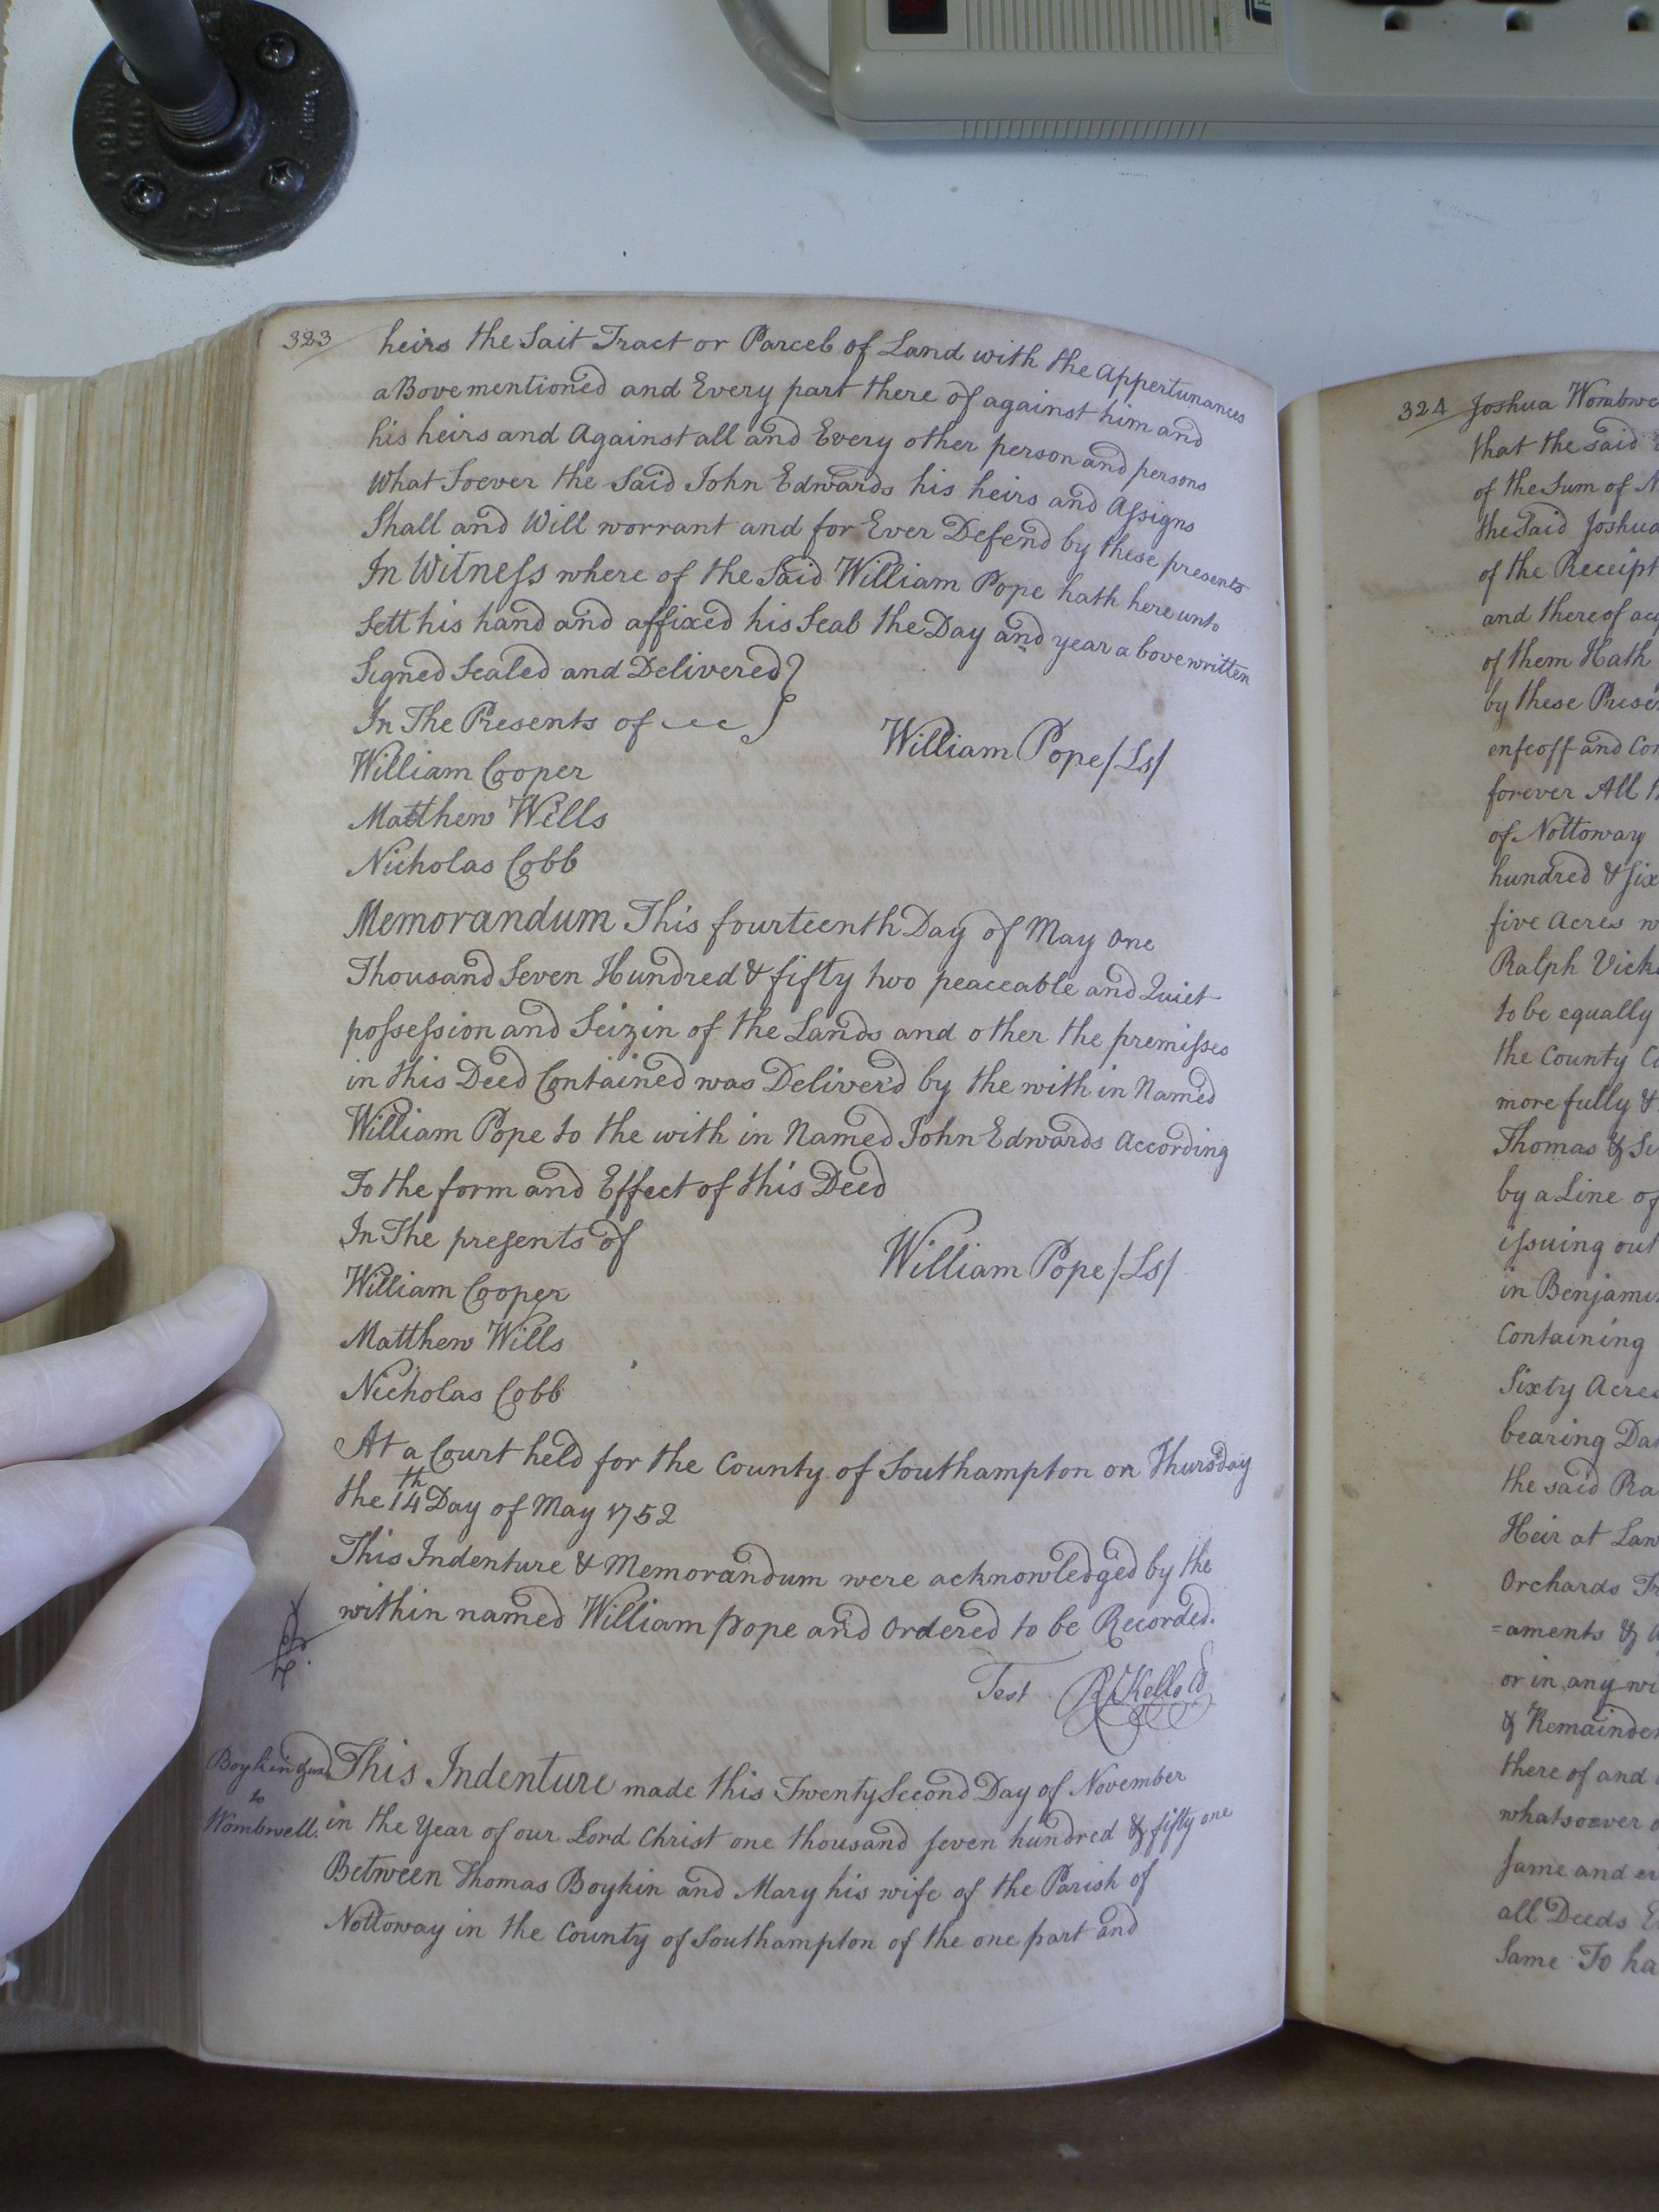 323
heirs the Sait Tract or Parcel of Land with the Appertunances
a Bove mentioned and Every part there of against him and
his heirs and Against all and Every other person and persons
What Soever the Said John Edwards his heirs and Assigns
Shall and Will worrant and for Ever Defend by these presents
In Witness where of the Said William Pope hath here unto
Sett his hand and affixed his Seal the Day and year above written
Signed Sealed and Delivered
In The Presents of
William Pope /Ls/
William Cooper
Matthew Wills
Nicholas Cobb
Memorandum This fourteenth Day of May One
Thousand Seven Hundred & fifty two peaceable and Quiet
possession and Seizin of the Lands and other the premisses
in this Deed Contained was Deliver'd by the with in Named
William Pope to the with in Named John Edwards According
To the form and Effect of this Deed
In The presents of
William Pope /Ls/
William Cooper
Matthew Wills
Nicholas Cobb
At a Court held for the County of Southampton on Thursday
the 14th Day of May 1752
This Indenture & Memorandum were acknowledged by the
within named William pope and Ordered to be Recorded.
Test
Boykin
to
Wombwell.
This Indenture made this Twenty Second Day of November
in the Year of our Lord Christ one thousand seven hundred & fifty one
Between Thomas Boykin and Mary his wife of the Parish of
Nottoway in the County of Southampton of the one part and
324 Joshua
that the said
of the Sum of
the Said Joshua
of the Receipt
and thereof
of them Hath
by these
enfeoff and
forever All
of Nottoway
hundred & six
five Acres
Ralph
to be equally
the County
more fully &
Thomas &
by a Line of
issuing out
in
Containing
Sixty Acres
bearing
the said
Heir at
Orchards
=aments &
or in any
& Remainder
there of and
whatsoever
same and
all Deeds
Same To